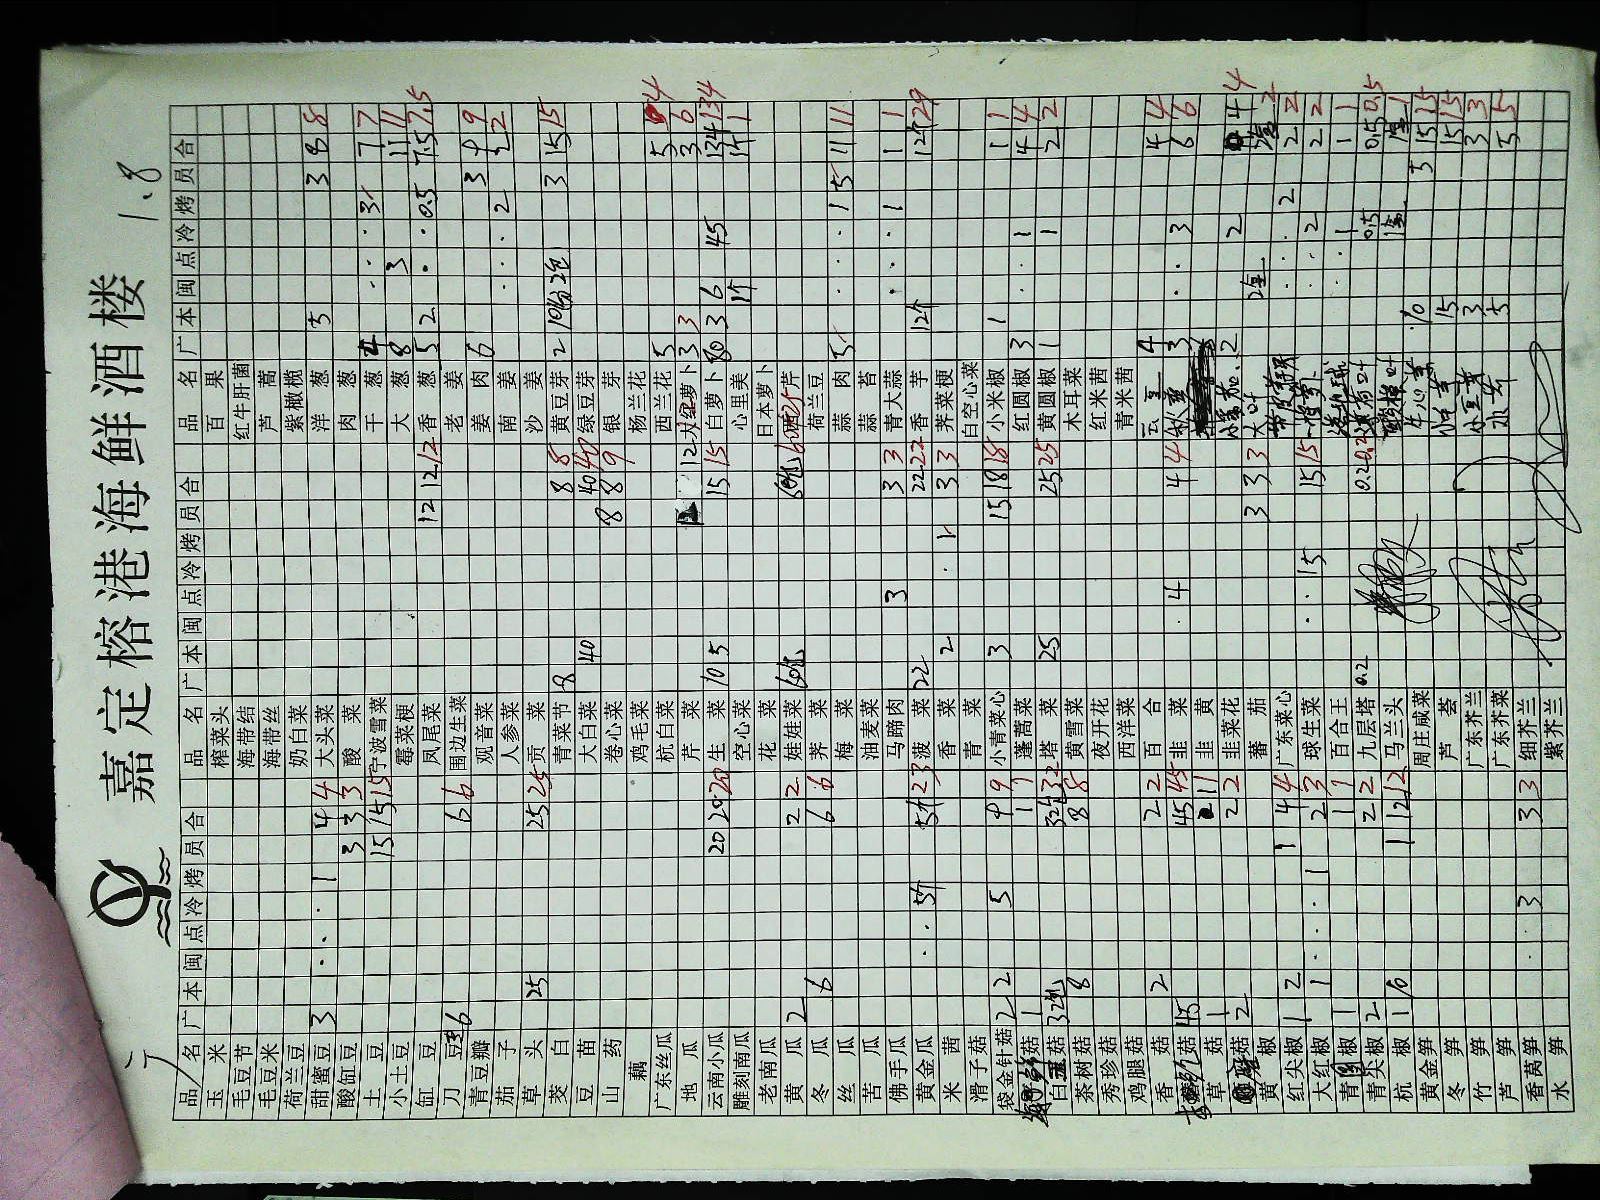 嘉定榕港海鲜酒楼
1.8
品名 广 本 闽 点 冷 烤 员 合 品名 广 本 闽 点 冷 烤 员 合 品名 广 本 闽 点 冷 烤 员 合
玉米 榨菜头 百果
毛豆节 海带结 红牛肝菌
毛豆米 海带丝 芦蒿
荷兰豆 奶白菜 紫橄榄
甜蜜豆 3 1 4 4 大头菜 洋葱 5 3 8 8
酸缸豆 3 3 3 酸菜 肉葱
土豆 15 15 15 宁波雪菜 干葱 4 3 7 7
小土豆 霉菜梗 大葱 8 3 11 11
缸豆 凤尾菜 12 12 12 香葱 5 2 0.5 7.5 7.5
刀豆 6 6 6 围边生菜 老姜
青豆瓣 观音菜 姜肉 6 3 9 9
茄子 人参菜 南姜 2 2 2
草头 25 25 25 贡菜 沙姜
茭白 青菜节 8 8 8 黄豆芽 2 10份 2包 3 15 15
豆苗 大白菜 40 40 40 绿豆芽
山药 卷心菜 8 8 9 银芽
藕 鸡毛菜 杨兰花
广东丝瓜 杭白菜 西兰花 5 5 4
地瓜 芹菜 12 大红萝卜 3 3 3 6
云南小瓜 20 20 20 生菜 10 5 15 15 白萝卜 80 3 6 45 134 134
雕刻南瓜 空心菜 心里美 1个 1个 1
老南瓜 花菜 日本萝卜
黄瓜 2 2 2 娃娃菜 60包 60包 60 西芹
冬瓜 6 6 6 荠菜 荷兰豆
丝瓜 梅菜 蒜肉 5 1 5 11 11
苦瓜 油麦菜 蒜苔
佛手瓜 马蹄肉 3 3 3 青大蒜 1 1 1
黄金瓜 5个 5个 23 菠菜 22 22 22 香芋 12个 12个 29
米茜 香菜 2 1 3 3 荠菜梗
滑子菇 青菜 白空心菜
袋金针菇 2 2 5 9 9 小青菜心 3 15 18 18 小米椒 1 1 1
菇 1 1 1 蓬蒿菜 红圆椒 3 1 4 4
白玉菇 32包 32包 32 塔菜 25 25 25 黄圆椒 1 1 2 2
茶树菇 8 8 8 黄雪菜 木耳菜
秀珍菇 夜开花 红米茜
鸡腿菇 西洋菜 青米茜
香菇 2 2 2 百合 云豆 4 4 4
菇 45 45 45 韭菜 4 4 4 秋葵 3 3 6 6
草菇 1 1 1 韭黄
菇 2 2 2 韭菜花 小番茄 2 2 4 4
黄椒 蕃茄 3 3 3 大叶 2盒 2盒 2
红尖椒 1 2 1 4 4 广东菜心 2 2 2
大红椒 1 1 2 3 球生菜 15 15 15 2 2 2
青椒 1 1 1 百合王 1 1 1
青尖椒 2 2 2 九层塔 0.2 0.2 0.2 0.5 0.5 0.5
杭椒 1 10 1 12 12 马兰头 1盒 1盒 1
黄金笋 周庄咸菜 牛心菜 10 5 15 15
冬笋 芦荟 15 15 15
竹笋 广东芥兰 小豆芽 3 3 3
芦笋 广东芥菜 水芹 5 5 5
香莴笋 3 3 3 细芥兰
水笋 紫芥兰